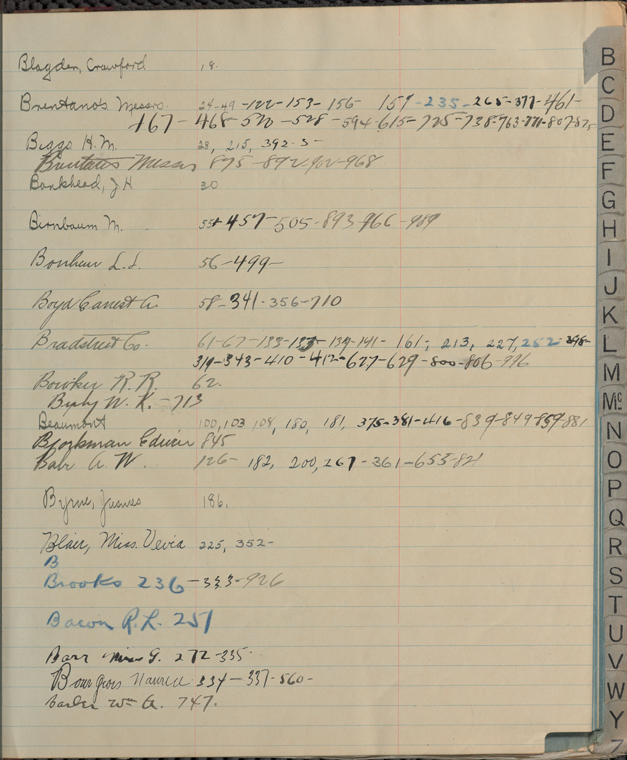 Blagden, Crawford 19.
Brentanos Messrs. 24-49-122-153-156- 157-235-265-377-461-
467-468-520-528-594-615-725-738-763-771-807-875
Biggs H. M. 28, 215, 392-5-
Brentanos Messrs 875-892-902-968
Bankhead, J H 30
Birnbaum M. 55-457-505-893-966-989
Bonheur L. L. 56-499-
Boyd Ernest A. 58-341-356-710
Bradstreet Co. 61-67-133-137-139-141- 161, 213, 227, 252-298-
319-343-410-412-627-629-800-806-996
Bowker R. R. 62.
Bixby W. K. -713
Beaumont 100, 103 108, 180, 181, 375-381-416-839-849-859-881
Bjorkman Edwin 845
Barr A. W. 126- 182, 200, 267-361-653-821
Byrne, James 186.
Blair, Miss. Vevia 225, 352-
B
Brooks 236-333-926
Bacon R. L. 251
Barr Miss G. 272-335-
Bourgeois Maurice 334-337-560-
Barler Wm A. 747.
B
C
D
E
F
G
H
I
J
K
L
M
Mc
N
O
P
Q
R
S
T
U
V
W
Y
Z